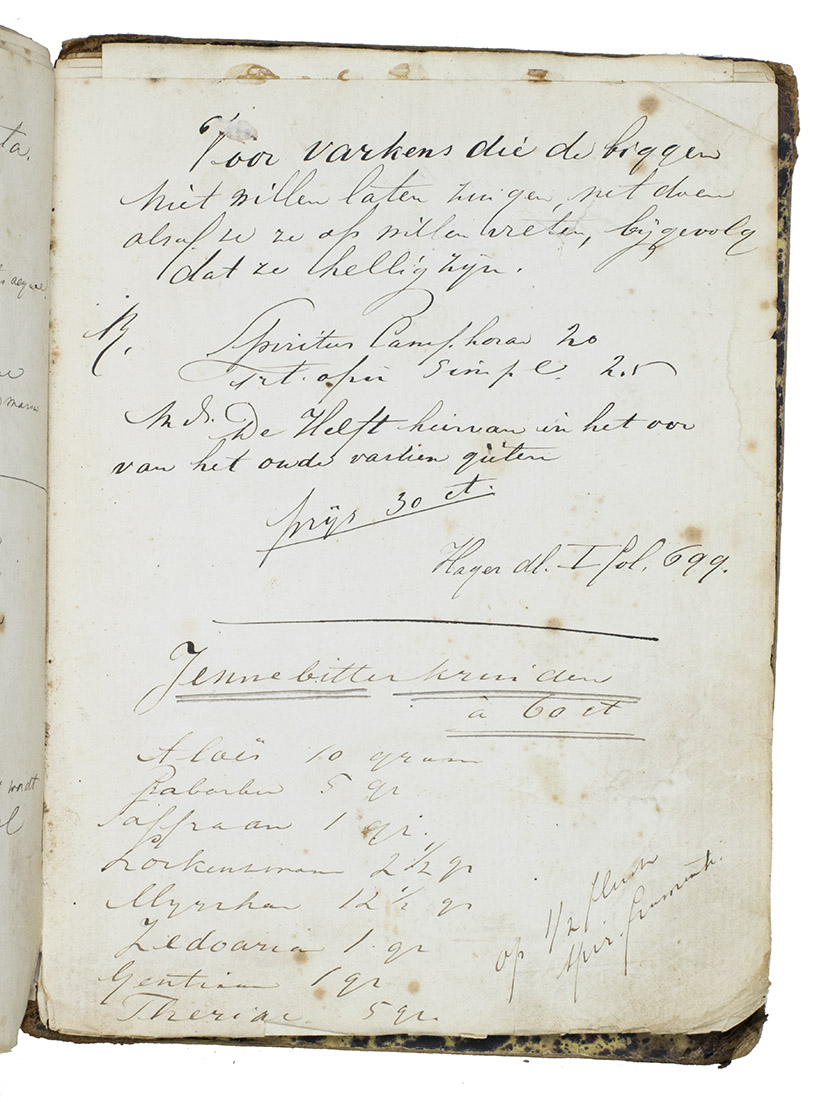 ta.
Voor varkens die de biggen
niet willen laten zuigen, net doen
alsof ze ze op willen vreten, bijgevolg
dat ze hellig zijn.
R.
Spiritus Camphorae 20
Trt. opii Simpl. 2.5
M.d.S. De Helft hiervan in het oor
van het oude varken gieten
prijs 30 ct.
Hager dl. I fol. 699.
Jennebitterkruiden
à 60 ct
Aloës 10 gram
Rabarber 5 gr
Saffraan 1 gr.
Lorkenzwam 2 1/2 gr
Myrrhae 12 1/2 gr
Zedoaria 1 gr
Gentiaan 1 gr
Theriac 5 gr.
op 1/2 flesch
spir. frumenti.
wordt